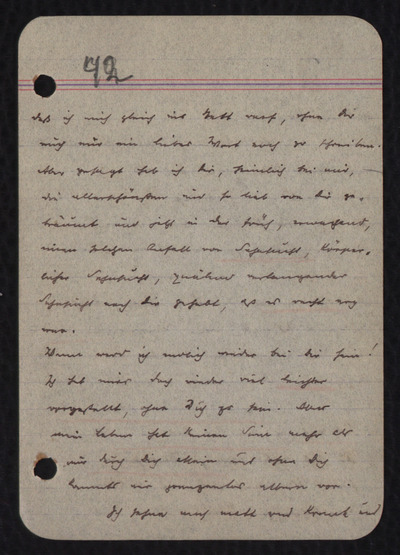 42
daß ich mich gleich ins Bett warf, ohne Dir
auch nur ein liebes Wort noch zu schreiben.
Aber gesagt hab ich Dir, heimlich bei mir,
die allerschönsten und so lieb von Dir ge-
träumt und jetzt in der Früh, erwachend,
einen solchen Anfall von Sehnsucht, körper-
licher Sehnsucht, quälend verlangender
Sehnsucht nach Dir gehabt, daß es recht arg
war.
Wann werd ich endlich wieder bei Dir sein!
Ich hab mirs doch wieder viel leichter
vorgestellt, ohne Dich zu sein. Aber
mein Leben hat keinen Sinn mehr als
nur durch Dich allein und ohne Dich
kommts mir
vor.
Ich sehne mich matt und krank und